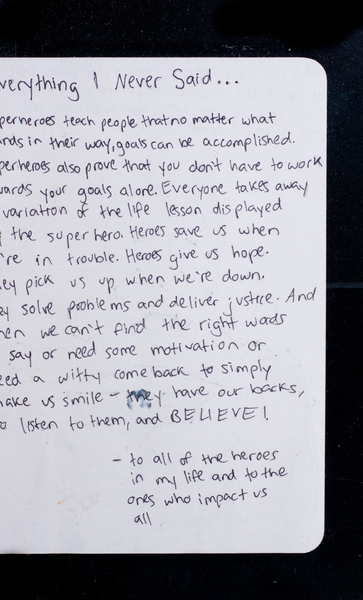 verything I Never Said...
perheroes teach people that no matter what
nds in their way, goals can be accomplished.
perheroes also prove that you don't have to work
wards your goals alone. Everyone takes away
variation of the life lesson displayed
the superhero. Heroes save us when
're in trouble. Heroes give us hope.
ey pick us up when we're down.
ey solve problems and deliver justice. And
hen we can't find the right words
say or need some motivation or
eed a witty comeback to simply
make us smile - they have our backs,
o listen to them, and BELIEVE!
- to all of the heroes
in my life and to the
ones who impact us
all